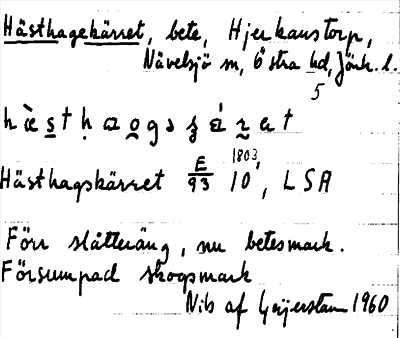 Hästhagekärret, bete, Hjerkanstorp,
Nävelsjö sn, Östra hd, Jönk. l.
5
Hästhagskärret E/93 10 1803, LSA
Förr slåtteräng, nu betesmark.
Försumpad skogsmark
Nils af Geijerstam 1960